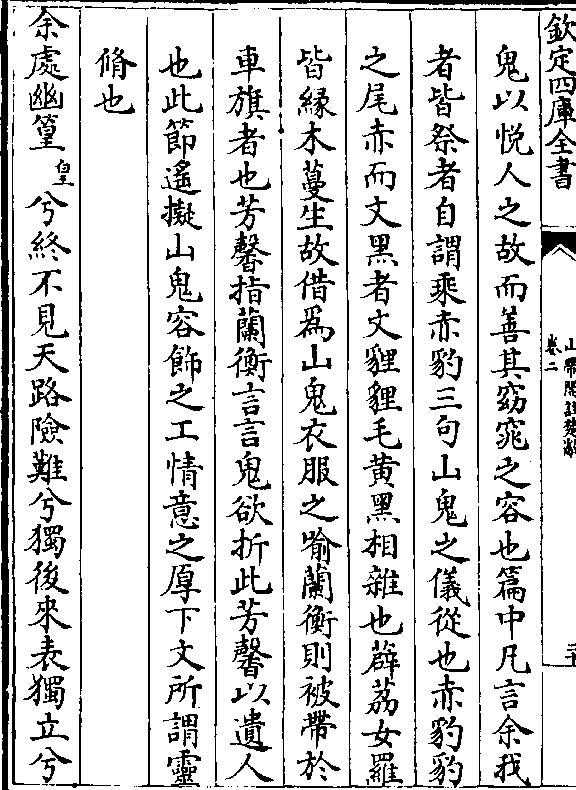 欽定四庫全書
山帶閣註楚辭
卷二
鬼以悅人之故而善其窈窕之容也篇中凡言余我
者皆祭者自謂乘赤豹三句山鬼之儀從也赤豹豹
之尾赤而文黑者文貍貍毛黃黑相雜也薜荔女羅
皆緣木蔓生故借爲山鬼衣服之喻蘭衡則被帶於
車旗者也芳馨指蘭衡言言鬼欲折此芳馨以遺人
也此節遙擬山鬼容飾之工情意之厚下文所謂靈
脩也
余處幽篁皇兮終不見天路險難兮獨後來表獨立兮